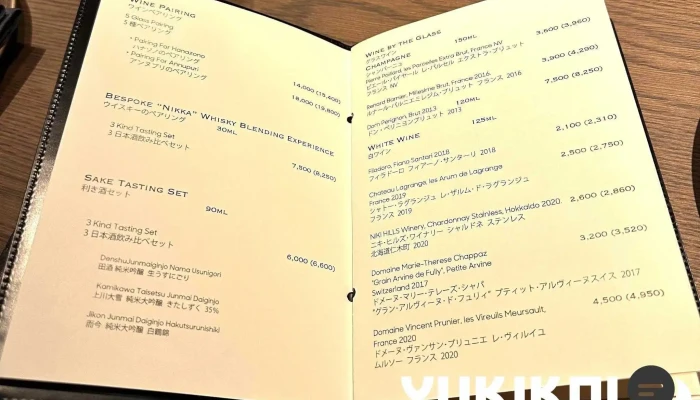 WINE PAIRING
ワインペアリング
5 Glass Pairing
5 種ペアリング
• Pairing For Hanazono
ハナゾノのペアリング
14,000 (15,400)
• Pairing For Annupuri
アンヌプリのペアリング
18,000 (19,800)
BESPOKE "NIKKA" WHISKY BLENDING EXPERIENCE
ウイスキーのペアリング
30ML
3 Kind Tasting Set
3 日本酒飲み比べセット
7,500 (8,250)
SAKE TASTING SET
利き酒セット
90ML
3 Kind Tasting Set
3 日本酒飲み比べセット
6,000 (6,600)
DenshuJunmaiginjo Nama Usunigori
田酒 純米吟醸 生うすにごり
Kamikawa Taisetsu Junmai Daiginjo
上川大雪 純米大吟醸 きたしずく 35%
Jikon Junmai Daiginjo Hakutsurunishiki
而今 純米大吟醸 白鶴錦
WINE BY THE GLASS
グラスワイン
150ML
CHAMPAGNE
シャンパーニュ
3,600 (3,960)
Pierre Paillard, les Parcelles Extra Brut, France NV
ピエール・パイヤール レ・パルセル エクストラ・ブリュット
フランス NV
3,900 (4,290)
Renard Barnier, Milesime Brut, France 2016
ルナール・バルニエミレジム・ブリュット フランス 2016
7,500 (8,250)
Dom Perignon, Brut 2013
ドン・ペリニヨンブリュット 2013
120ML
WHITE WINE
白ワイン
125ML
2,100 (2,310)
Filadoro, Fiano Santari 2018
フィラドーロ フィアーノ・サンターリ 2018
2,500 (2,750)
Chateau Lagrange, les Arum de Lagrange
France 2019
シャトー・ラグランジュ レ・ザルム・ド・ラグランジュ
フランス 2019
NIKI HILLS Winery, Chardonnay Stainless, Hokkaido 2020
2,600 (2,860)
ニキ・ヒルズ・ワイナリー シャルドネ ステンレス
北海道仁木町 2020
3,200 (3,520)
Domaine Marie-Therese Chappaz
"Grain Arvine de Fully", Petite Arvine
Switzerland 2017
ドメーヌ・マリー・テレーズ・シャパ
"グラン・アルヴィーヌ・ド・フュリィ" プティット・アルヴィーヌスイス 2017
4,500 (4,950)
Domaine Vincent Prunier, les Vireuils Meursault,
France 2020
ドメーヌ・ヴァンサン・プリュニエ レ・ヴィルイユ
ムルソー フランス 2020